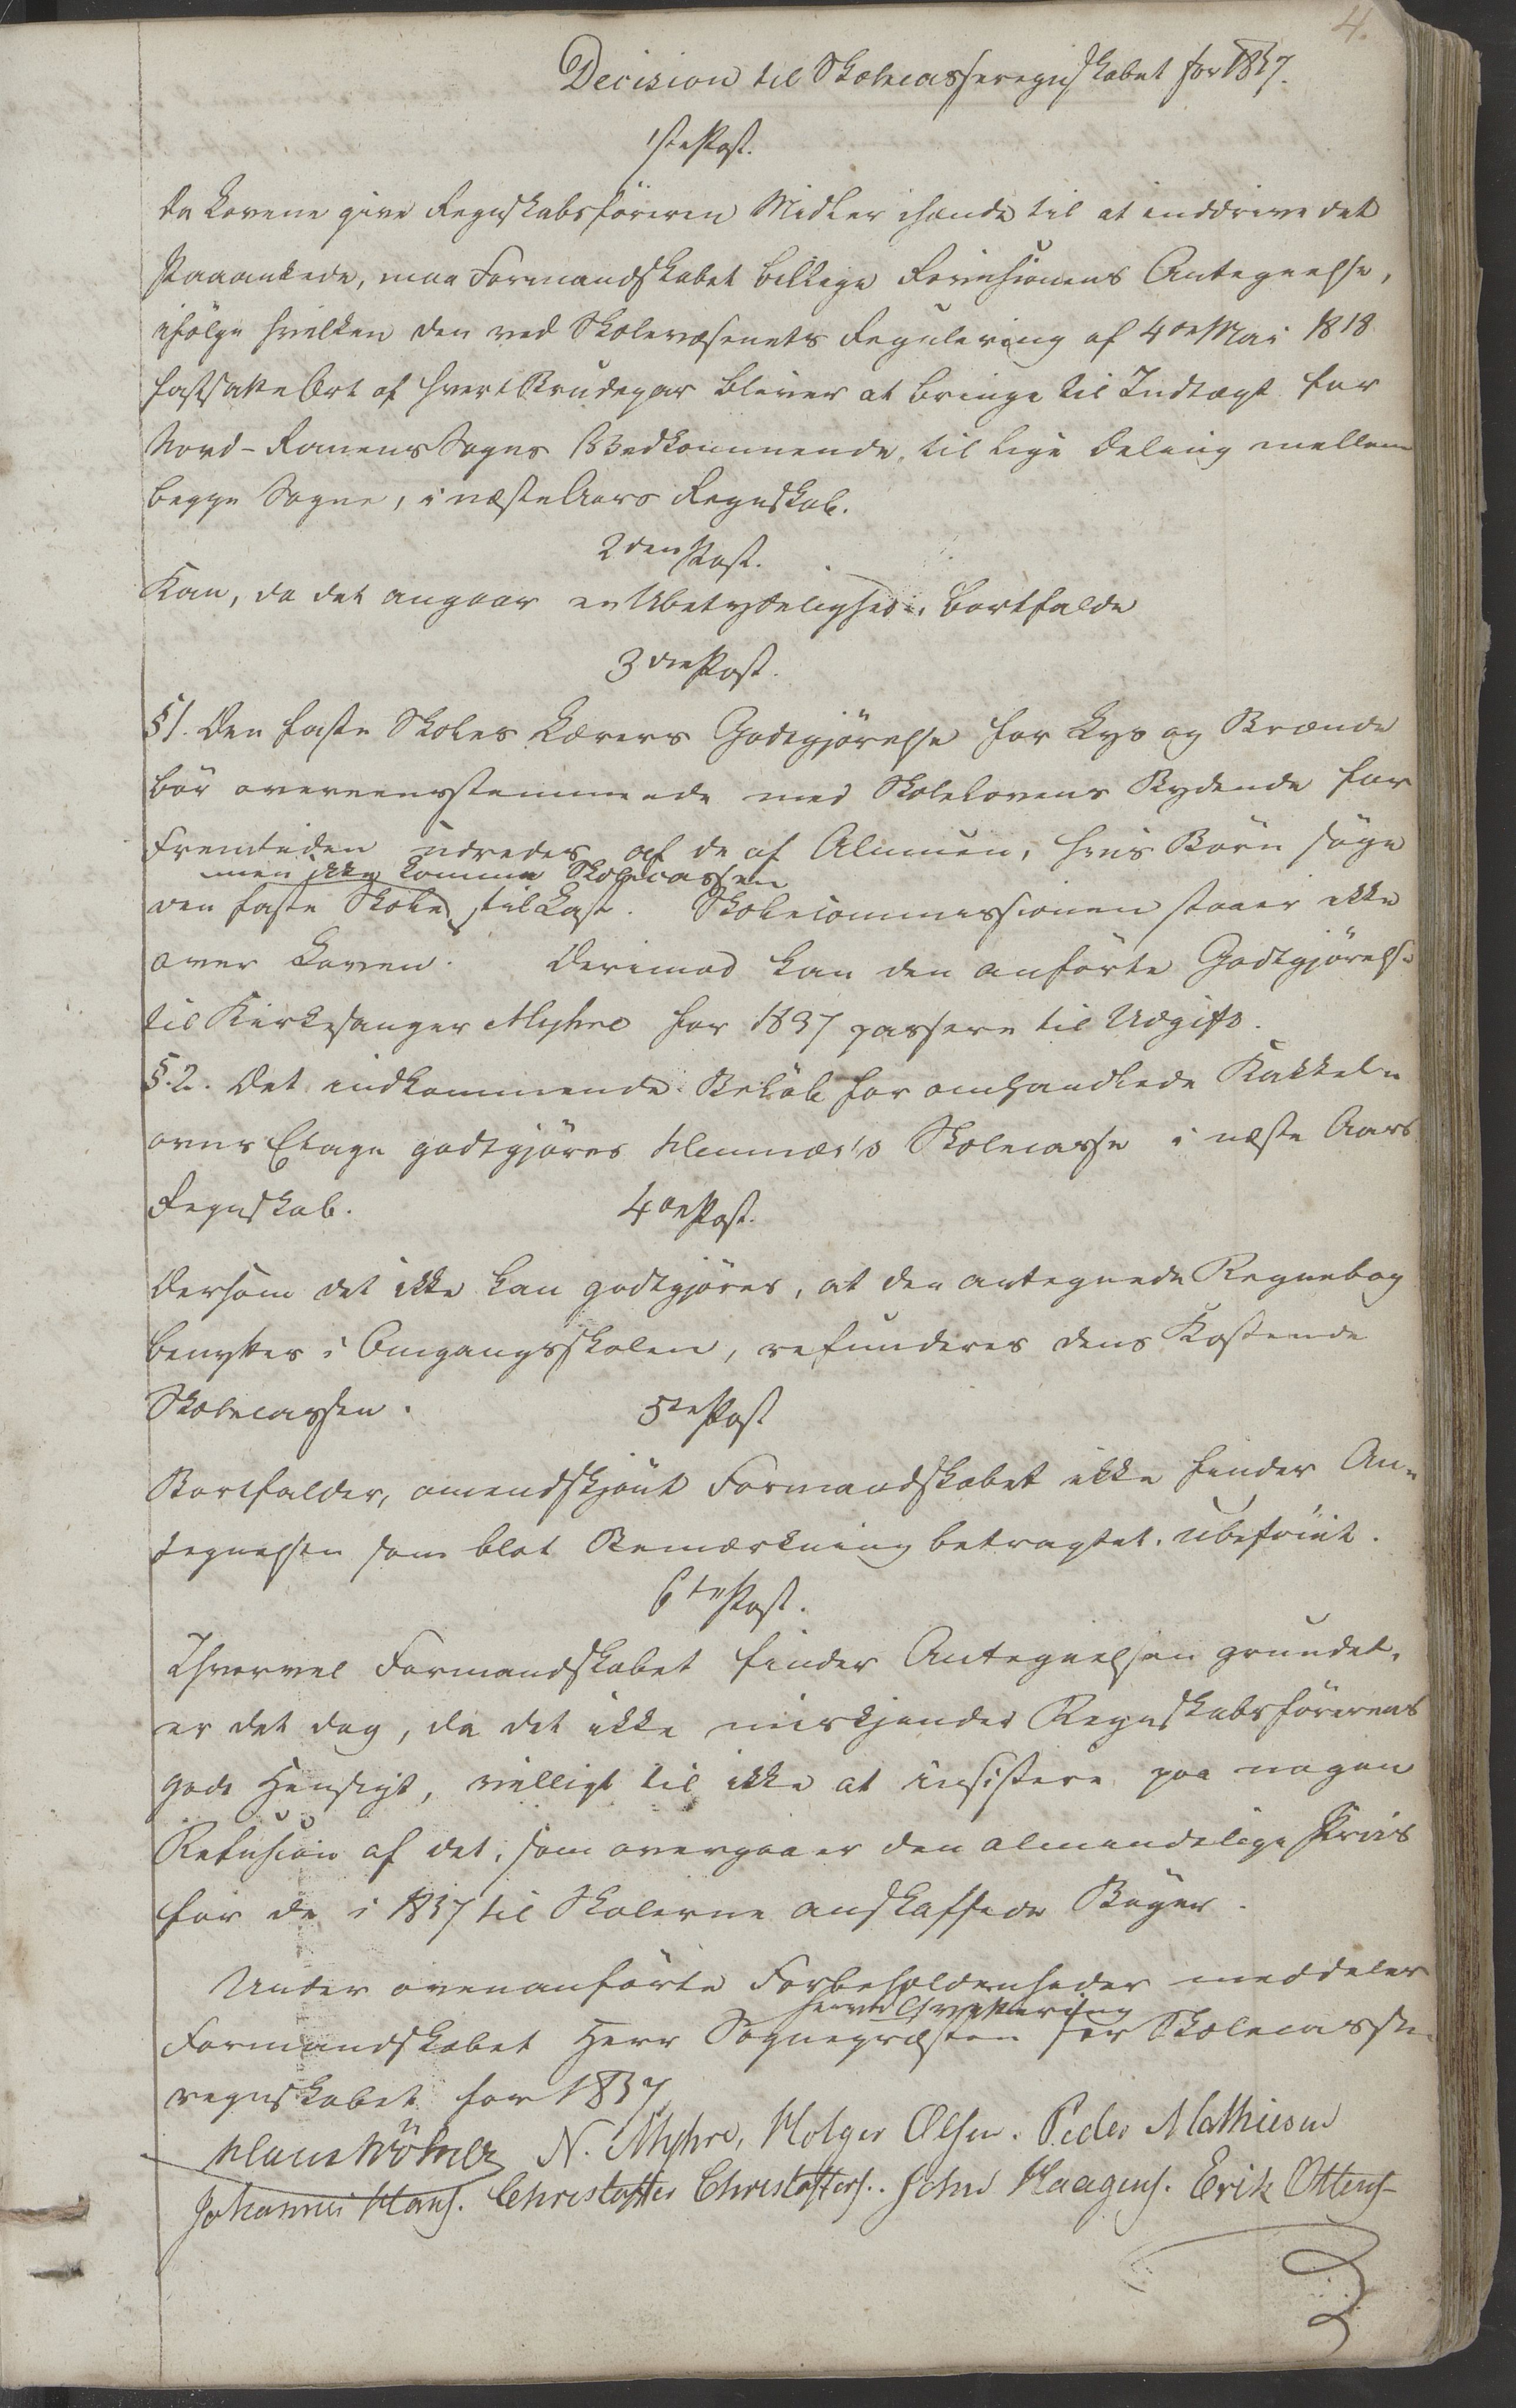 4.
Decision til Skolecasseregnskabet for 1837.
1ste Post.
Da Lovene give Regnskabsföreren Midler ihænde til at inddrive det
Paaankede, maa Formandskabet billige Revisionens Antegnelse,
ifölge hvilken den ved Skolevæsenets Regulering af 4de Mai 1818
fastsatte Ort af hvert Brudepar bliver at bringe til Indtægt for
Nord-Ranens Sogns Vedkommende, til lige Deling mellem
begge Sogne, i næste Aars Regnskab.
2den Post.
Kan, da det angaar en Ubetydelighed, bortfalde
3die Post.
§1. Den faste Skoles Lærers Godtgjörelse for Lys og Brænde
bör overeensstemmende med Skolelovens Bydende for
Fremtiden udredes af de af Almuen, hvis Börn söge
men ikke komme Skolecassen
den faste Skole, til Last. Skolecommissionen staaer ikke
over Loven. Derimod kan den anförte Godtgjörelse
til Kirkesanger Myhre for 1837 passere til Udgift.
§.2. Det indkommende Belöb for omhandlede Kakkelovns
Etage godtgjöres Hemnæs's Skolecasse i næste Aars
Regnskab.
4de Post.
Dersom det ikke kan godtgjöres, at den antegnede Regnebog
benyttes i Omgangsskolen, refunderes dens Kostende
Skolecassen.
5te Post
Bortfalder, omendskjönt Formandskabet ikke finder An-
tegnelsen som blot Bemærkning betragtet, ubeföiet.
6te Post.
Ihvorvel Formandskabet finder Antegnelsen grundet,
er det dog, da det ikke miskjender Regnskabsförerens
gode Hensigt, villigt til ikke at insistere paa nogen
Refusion af det, som overgaaer den almindelige Priis
for de i 1837 til Skolerne anskaffede Böger.
Under ovenanförte Forbeholdenheder meddeler
herved Qvittering
Formandskabet Herr Sognepræsten for Skolecasse-
regnskabet for 1837
N. Myhre, Holger Olsen. Peder Mathiesen
Johannes Hans. Christoffer Christoffers. John Haagens. Erik Ottens